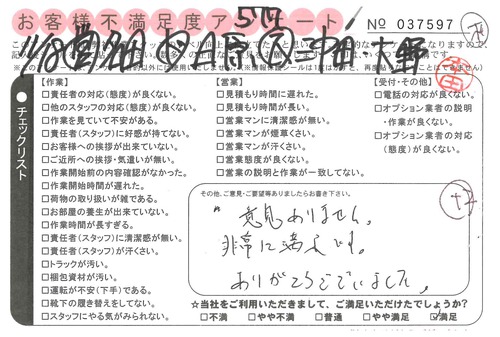 お客様不満足度アンケート
No 037597
チェックリスト
【作業】
□責任者の対応(態度)が良くない。
□他のスタッフの対応(態度)が良くない。
□作業を見ていて不安がある。
□責任者(スタッフ)に好感が持てない。
□お客様への挨拶が出来ていない。
□ご近所への挨拶・気遣いが無い。
□作業開始前の内容確認がなかった。
□作業開始時間が遅れた。
□荷物の取り扱いが雑である。
□お部屋の養生が出来ていない。
□作業時間が長すぎる。
□責任者(スタッフ)に清潔感が無い。
□責任者(スタッフ)が汗くさい。
□トラックが汚い。
□梱包資材が汚い。
□運転が不安(下手)である。
□靴下の履き替えをしてない。
□スタッフにやる気がみられない。
【営業】
□見積もり時間に遅れた。
□見積もり時間が長い。
□営業マンに清潔感が無い。
□営業マンが煙草くさい。
□営業マンが汗くさい。
□営業態度が良くない。
□営業の説明と作業が一致してない。
【受付・その他】
□電話の対応が良くない。
□オプション業者の説明
・作業が良くない。
□オプション業者の対応
(態度)が良くない。
その他、ご意見・ご要望等ありましたらお書き下さい。
意見ありません。
非常に満足です。
ありがとうございました。
☆当社をご利用いただきまして、ご満足いただけたでしょうか?
□不満 □やや不満 □普通 □やや満足 ☑満足